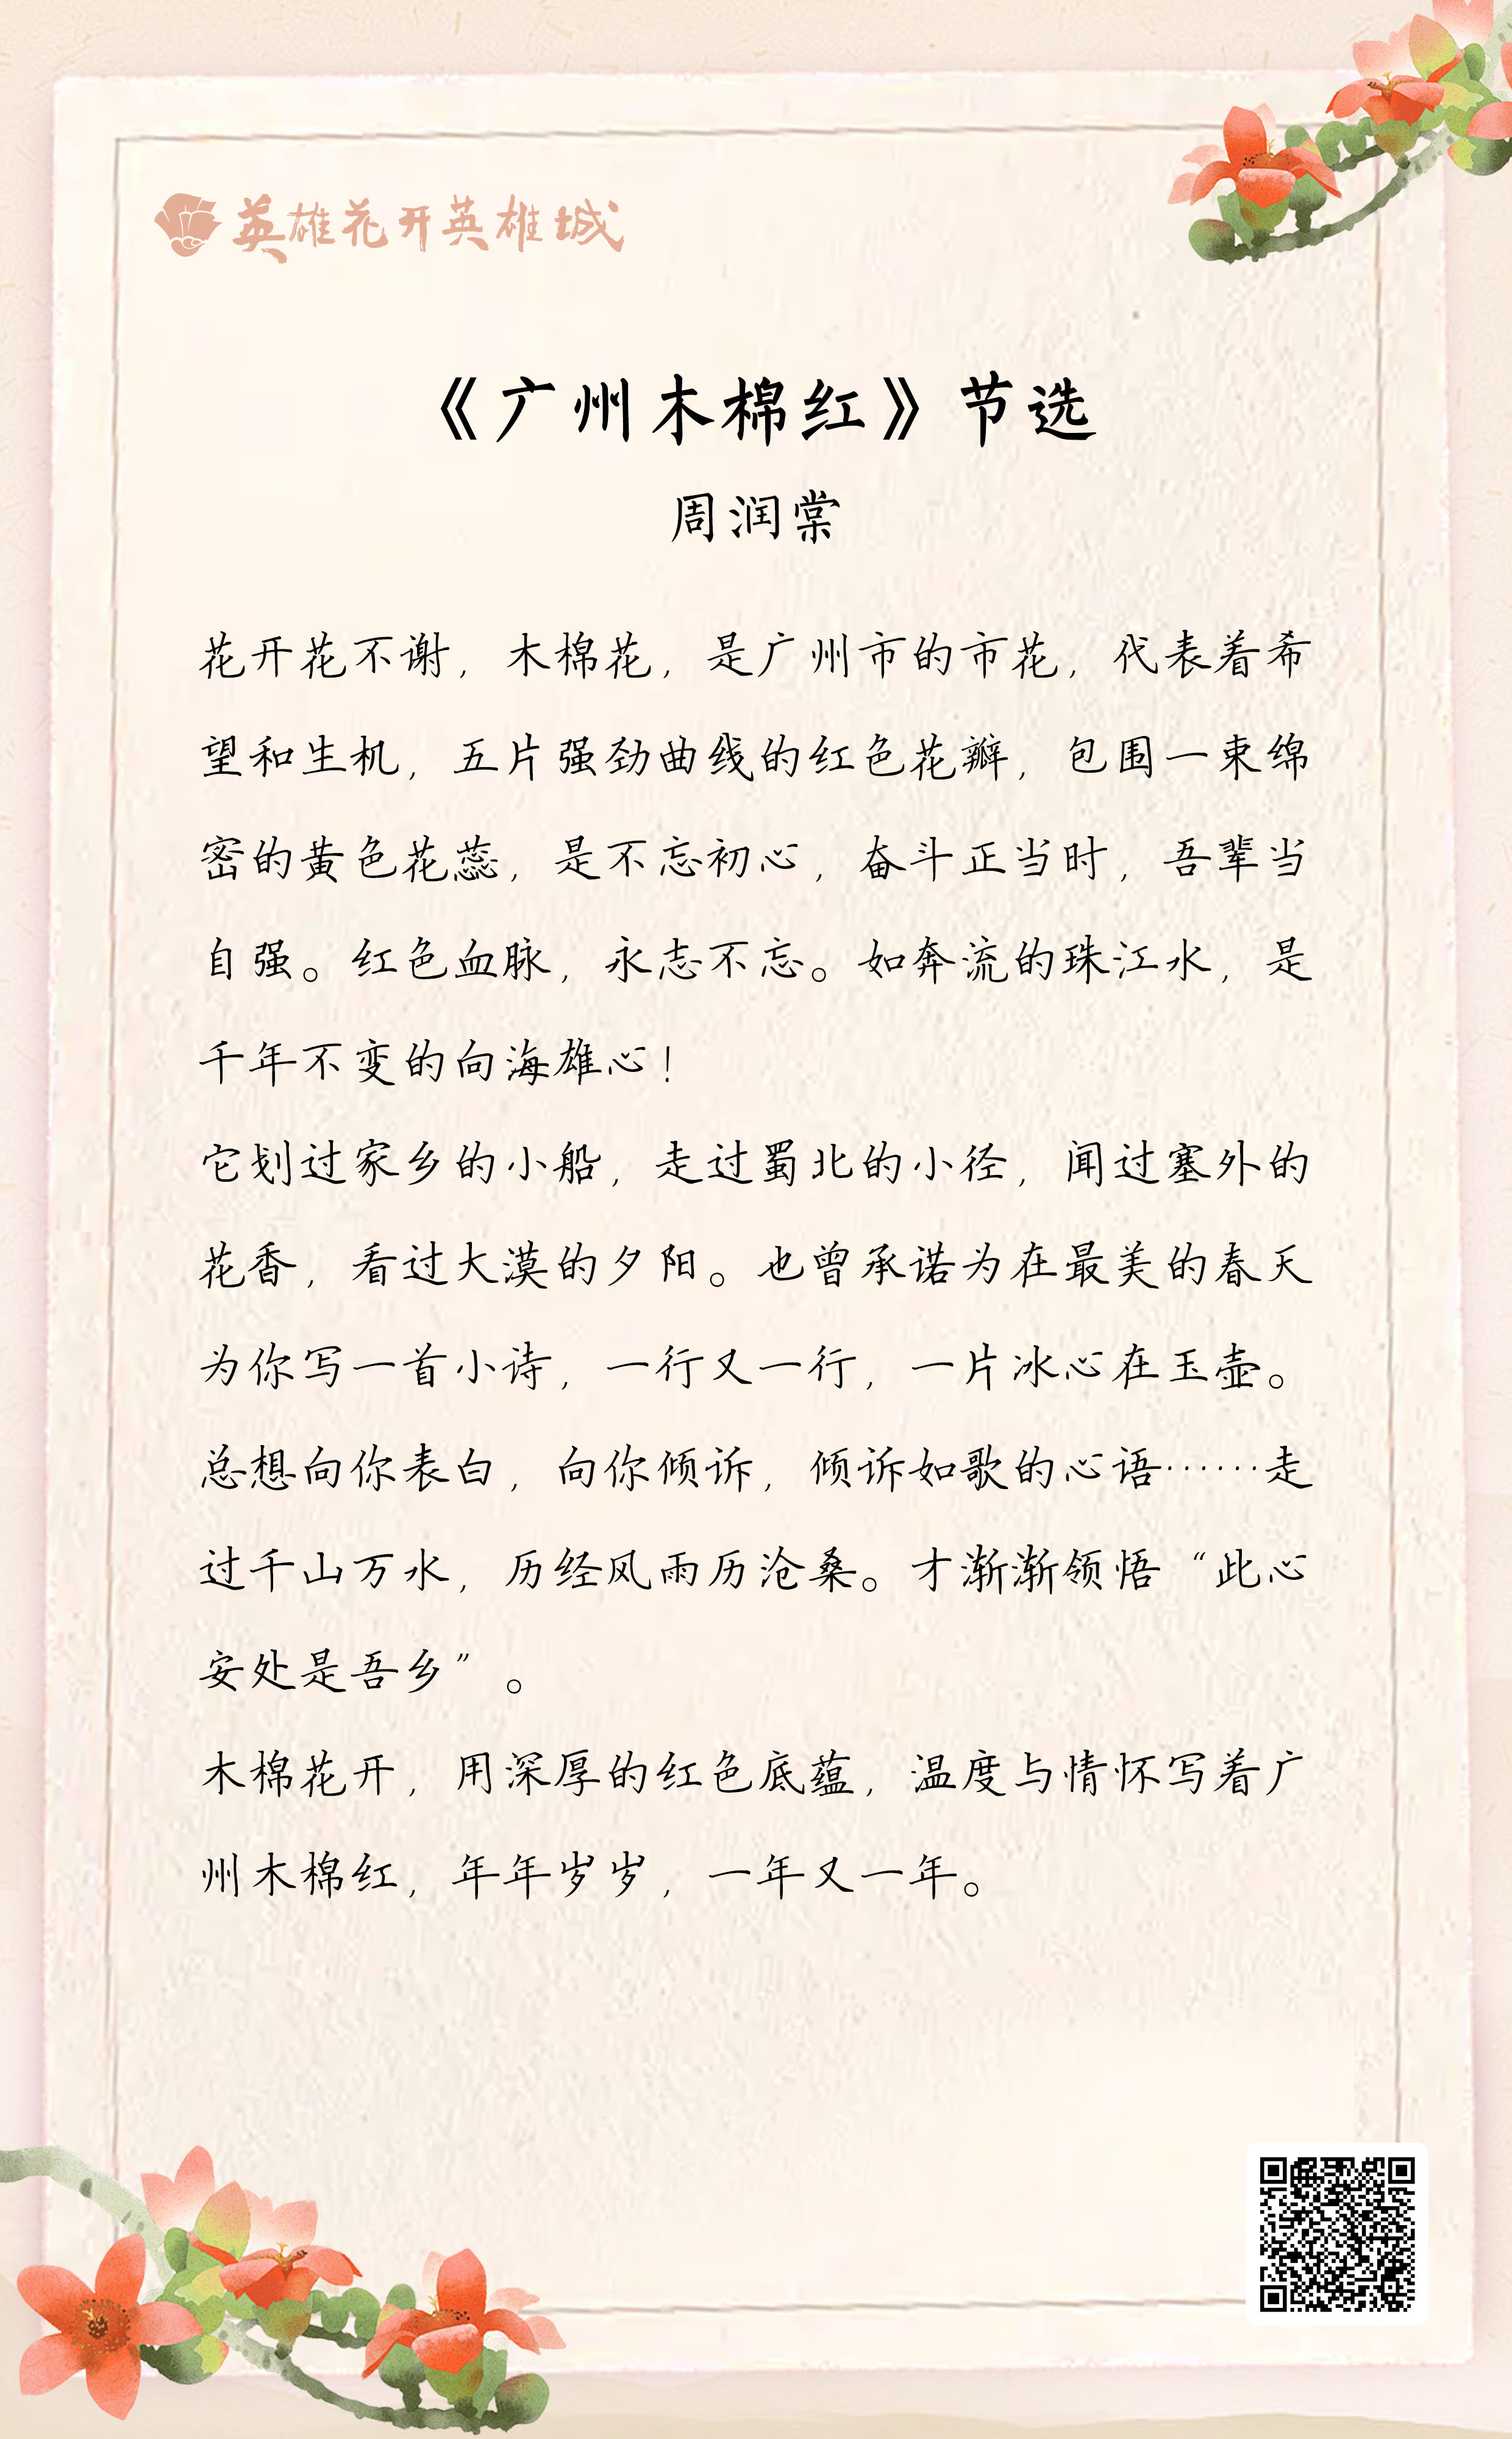 英雄花开英雄城
《广州木棉红》节选
周润棠
花开花不谢，木棉花，是广州市的市花，代表着希
望和生机，五片强劲曲线的红色花瓣，包围一束绵
密的黄色花蕊，是不忘初心，奋斗正当时，吾辈当
自强。红色血脉，永志不忘。如奔流的珠江水，是
千年不变的向海雄心！
它划过家乡的小船，走过蜀北的小径，闻过塞外的
花香，看过大漠的夕阳。也曾承诺为在最美的春天
为你写一首小诗，一行又一行，一片冰心在玉壶。
总想向你表白，向你倾诉，倾诉如歌的心语……走
过千山万水，历经风雨历沧桑。才渐渐领悟“此心
安处是吾乡”。
木棉花开，用深厚的红色底蕴，温度与情怀写着广
州木棉红，年年岁岁，一年又一年。